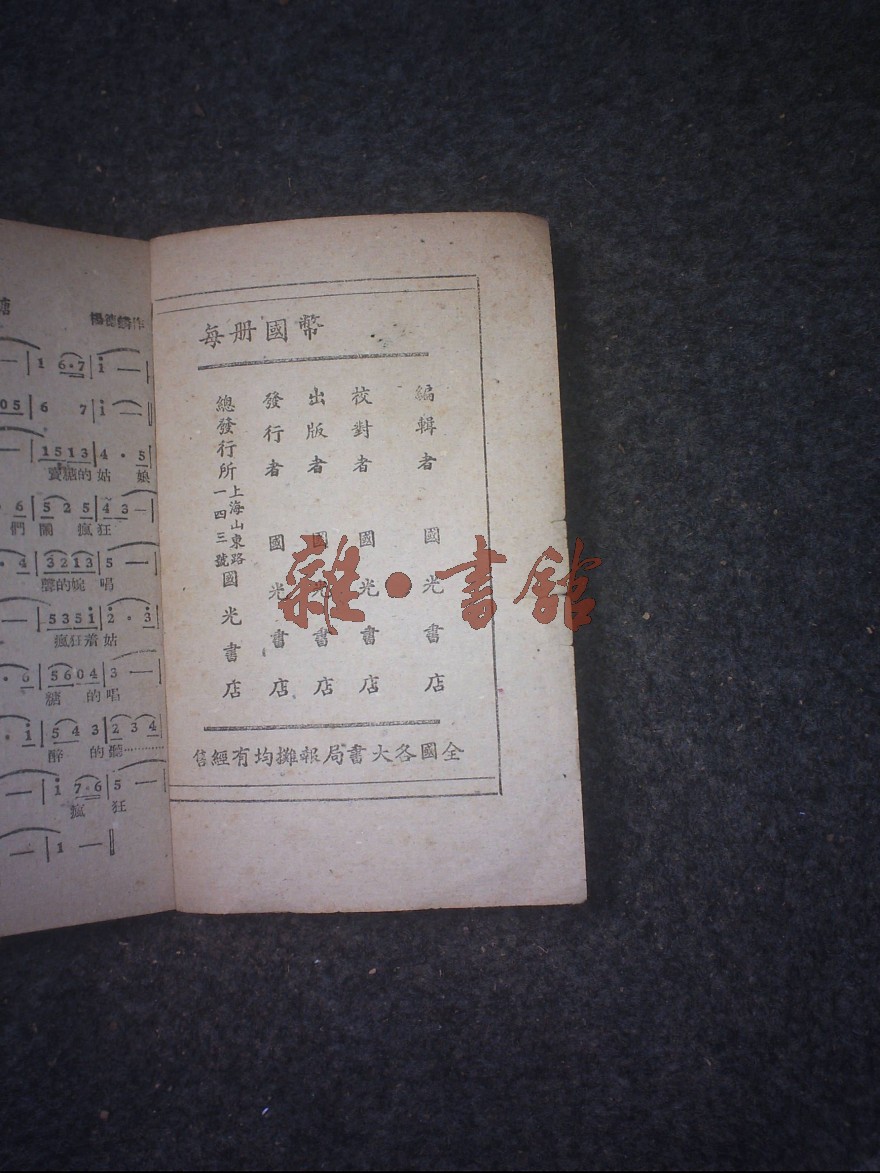 糖
楊德麟作
1 6·7 i —
05 6 7 i —
1513 4 · 5
賣糖的姑 娘
6 5 2 5 4 3 —
們 鬧 瘋 狂
· 4 3213 5 —
聲的婉 唱
5351 2 · 3
瘋狂着姑
· 6 5604 3 —
糖 的 唱
· i 5 4 3 2 3 4
醉 的 聽…………
— i 7·6 5 —
瘋 狂
— 1 —
每册國幣
編輯者 國光書店
校對者 國光書店
出版者 國光書店
發行者 國光書店
總發行所 上海山東路一四三號 國光書店
全國各大書局報攤均有經售
雜·書館